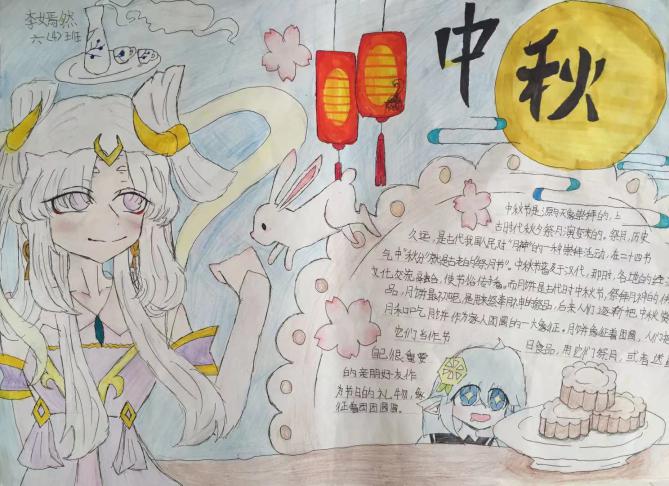 李嫣然
六(4)班
中秋
中秋节是源与天象崇拜的,上
古时代秋夕祭月演变来的。祭月,历史
久远,是古代我国人民对"月神"的一种崇拜活动,在二十四节
气中"秋分"就是古老的祭月节"。中秋节普及于汉代,那时,各地
文化交流融合,使节俗传播。而月饼是古代时中秋节,祭拜月神的
品,月饼最初呢,是用来祭奉月神的祭品,后来人们逐渐把中秋赏
月和口吃月饼并作为家人团圆的一大象征。月饼象征着团圆,人们把
它们当作节
日食品,用它们祭月,或者送
自己很重要
的亲朋好友作
为节日的礼物,象
征着团团圆圆。